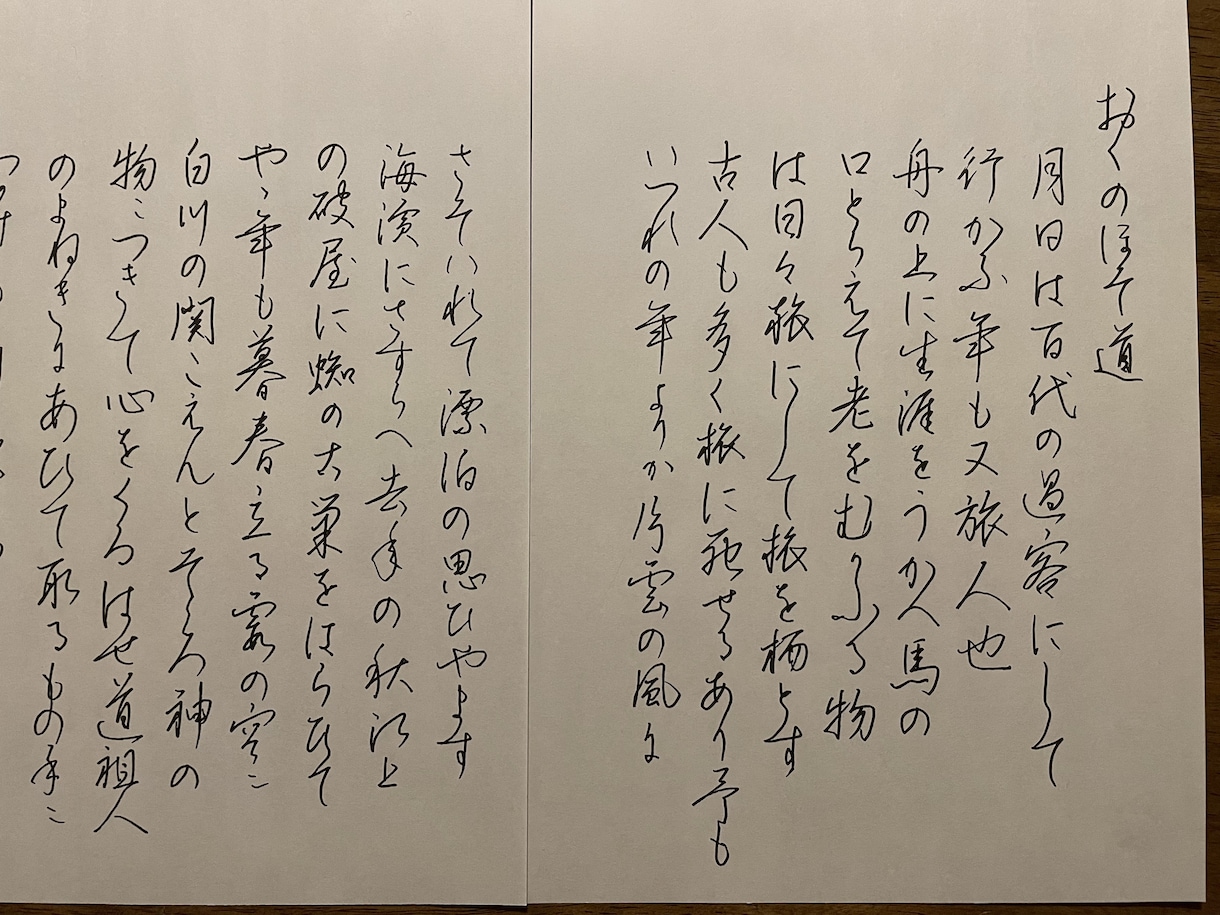 おくのほそ道
月日は百代の過客にして
行かふ年も又旅人也
舟の上に生涯をうかへ馬の
口とらえて老をむかふる物
は日々旅にして旅を栖とす
古人も多く旅に死せるあり予も
いつれの年よりか片雲の風に
さそハれて漂泊の思ひやます
海濱にさすらへ去年の秋江上
の破屋に蜘の古巣をはらひて
やゝ年も暮春立る霞の空ニ
白川の関こえんとそゝろ神の
物ニつきて心をくるはせ道祖人
のまねきにあひて取るもの手ニ